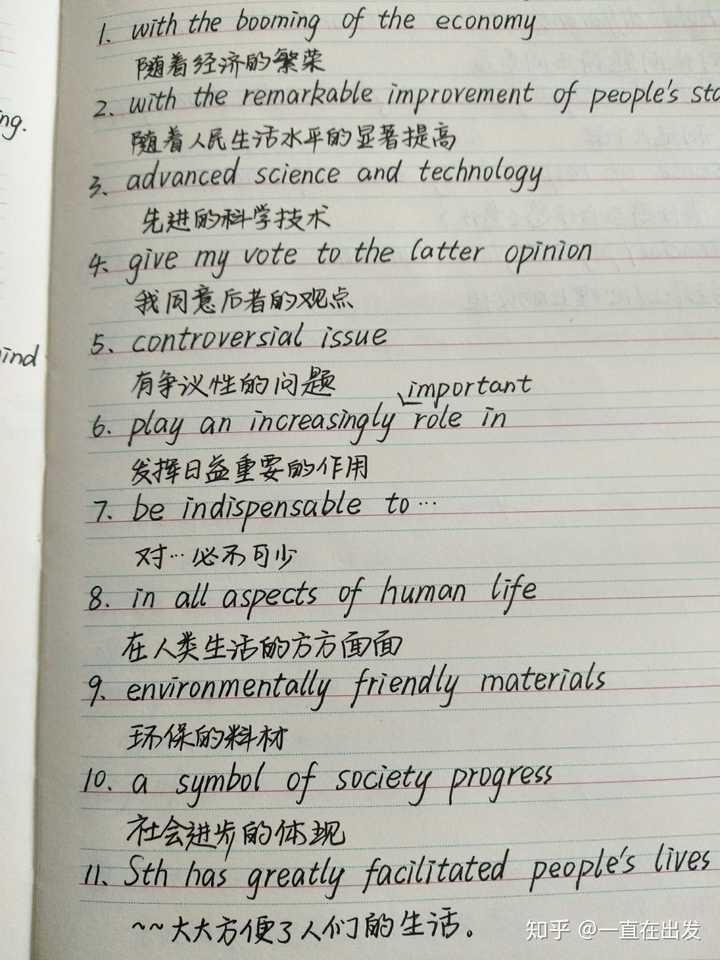 1. with the booming of the economy
随着经济的繁荣
2. with the remarkable improvement of people's
随着人民生活水平的显著提高
3. advanced science and technology
先进的科学技术
4. give my vote to the latter opinion
我同意后者的观点
5. controversial issue
有争议性的问题
important
6. play an increasingly role in
发挥日益重要的作用
7. be indispensable to…
对…必不可少
8. in all aspects of human life
在人类生活的方方面面
9. environmentally friendly materials
环保的料材
10. a symbol of society progress
社会进步的体现
11. Sth has greatly facilitated people's lives
~~大大方便了人们的生活。
知乎 @一直在出发